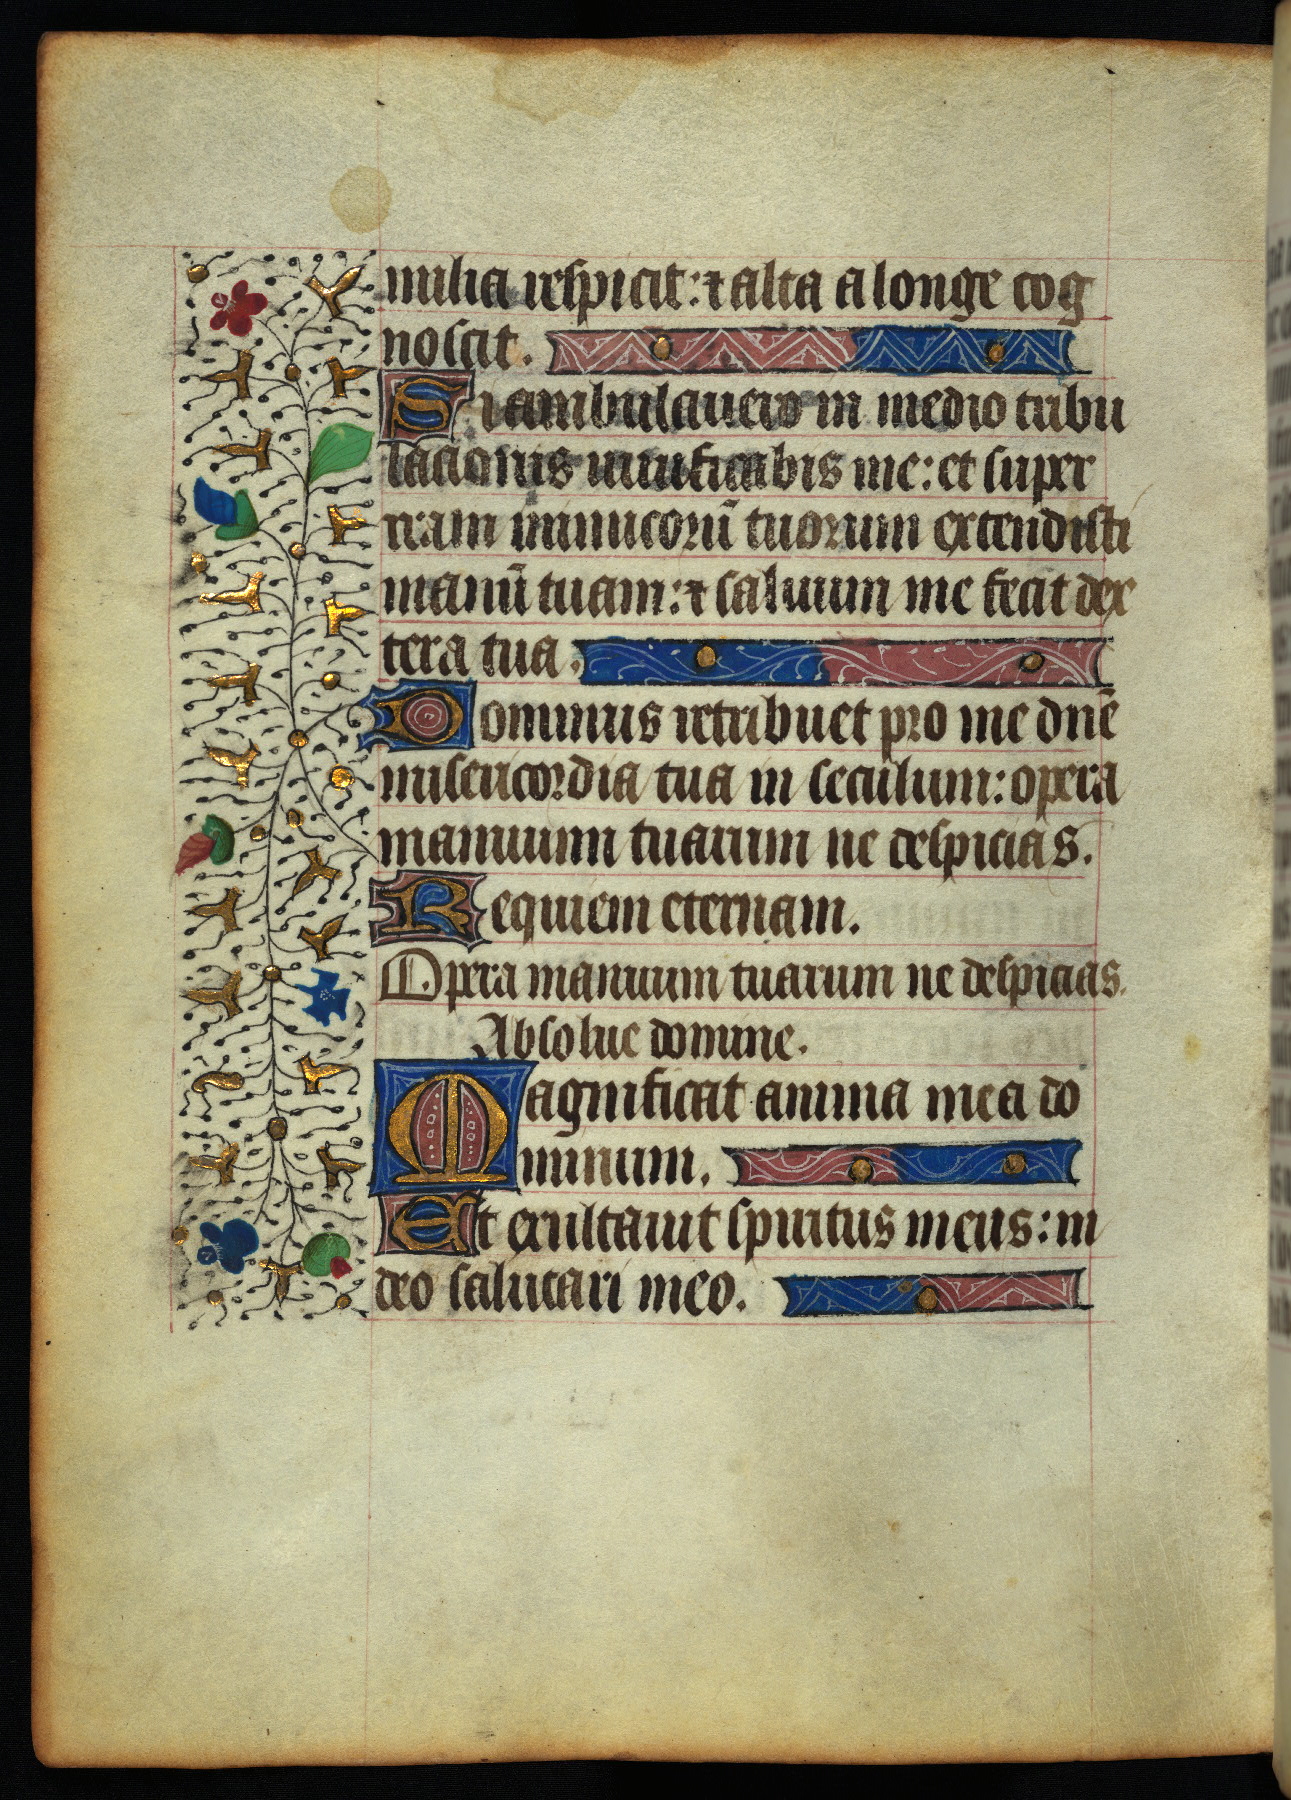 milia respicit: ⁊ alta a longe cog
noscit.
Si ambulauero in medio tribu
lacionis uiuificabis me: et super
iram inimicorū tuorum extendisti
manū tuam: ⁊ saluum me fecit dex
tera tua.
Dominus retribuet pro me dnē
misericordia tua in seculum: opera
manuum tuarum ne despicias.
Requiem eternam.
Opera manuum tuarum ne despicias.
Absolue domine.
Magnificat anima mea do
minum.
Et exultauit spiritus meus: in
deo salutari meo.